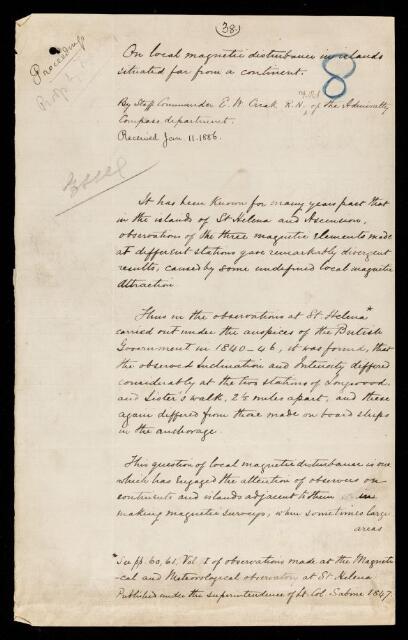 (38)
Proceedings
On local magnetic disturbance in islands
situated far from a continent.
8
By Staff Commander E. W. Creak R.N., of the Admiralty
Compass department.
Received Jan. 11. 1886.
It has been known for many years past that
in the islands of St Helena and Ascension,
observations of the three magnetic elements made
at different stations gave remarkably divergent
results, caused by some undefined local magnetic
attraction.
Thus in the observations at St. Helena*
carried out under the auspices of the British
Government in 1840-46, it was found, that
the observed Inclination and Intensity differed
considerably at the two stations of Longwood
and Sister's walk, 2½ miles apart, and these
again differed from those made on board ships
in the anchorage.
This question of local magnetic disturbance is one
which has engaged the attention of observers on
continents and islands adjacent to them in
making magnetic surveys, when sometimes large
areas
* See pp. 60, 61, Vol. I of observations made at the Magneti-
-cal and Meteorological observatory at St Helena
Published under the superintendence of Lt. Col. Sabine 1847.